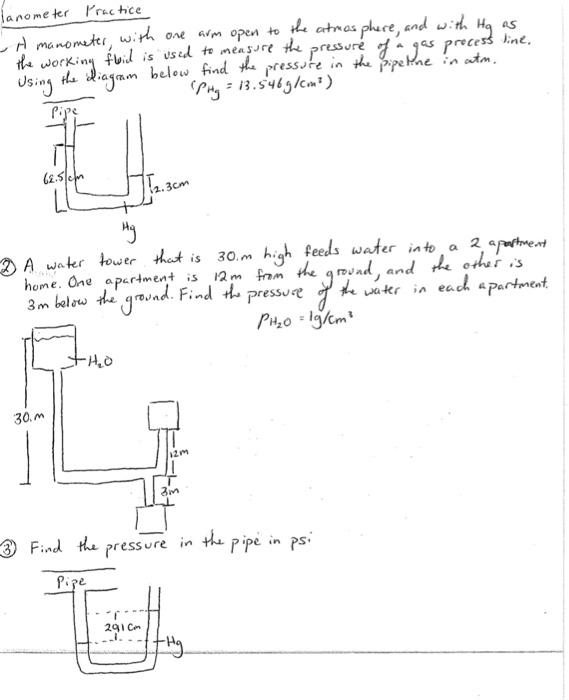 Manometer Practice
A manometer, with one arm open to the atmosphere, and with Hg as
the working fluid is used to measure the pressure of a gas process line.
Using the diagram below find the pressure in the pipeline in atm.
(ρHg = 13.546g/cm³)
Pipe
62.5cm
12.3cm
Hg
② A water tower that is 30.m high feeds water into a 2 apartment
home. One apartment is 12m from the ground, and the other is
3m below the ground. Find the pressure of the water in each apartment.
ρH₂O = 1g/cm³
H₂O
30.m
12m
3m
③ Find the pressure in the pipe in psi
Pipe
29.1cm
Hg